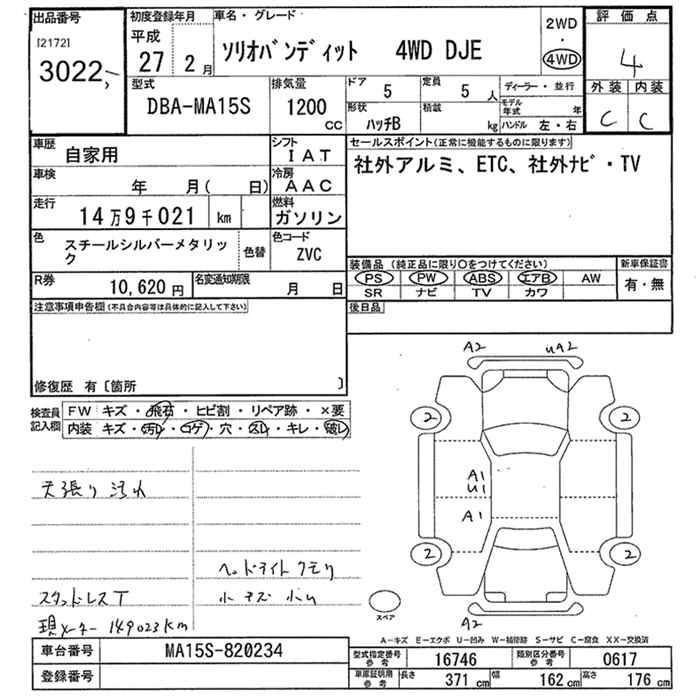 出品番号
[2172]
3022
初度登録年月
平成
27 2月
車名・グレード
ソリオバンディット 4WD DJE
2WD
・
4WD
評価点
4
外装 内装
C C
型式
DBA-MA15S
排気量
1200
CC
ドア
5
定員
5 人
ディーラー・並行
形状
ハッチB
積載
kg
モデル年式 年
ハンドル 左・右
車歴
自家用
シフト
IAT
車検
年 月( 日)
冷房
AAC
走行
14万9千021 km
燃料
ガソリン
色
スチールシルバーメタリック
色替
色コード
ZVC
R券
10,620円
名変通知期限
月 日
セールスポイント(正常に機能するものに限ります)
社外アルミ、ETC、社外ナビ・TV
装備品(純正品に限り○をつけてください)
新車保証書
PS PW ABS エアB AW
有・無
SR ナビ TV カワ
後日品
注意事項申告欄(不具合内容等は具体的に記入して下さい)
修復歴 有〔箇所 〕
検査員
記入欄
FW キズ・飛石・ヒビ割・リペア跡・×要
内装 キズ・汚れ・コゲ・穴・スレ・キレ・破レ
天張り汚れ
ヘッドライトクモリ
スタッドレスT
小キズ小凹
現メーター149023km
A2 UA2
2 2
A1
U1
A1
2 2
A2
スペア
A-キズ E-エクボ U-凹み W-補修跡 S-サビ C-腐食 XX-交換済
車台番号
MA15S-820234
登録番号
型式指定番号
参考
16746
類別区分番号
参考
0617
車庫証明用
参考
長さ 371 cm 幅 162 cm 高さ 176 cm